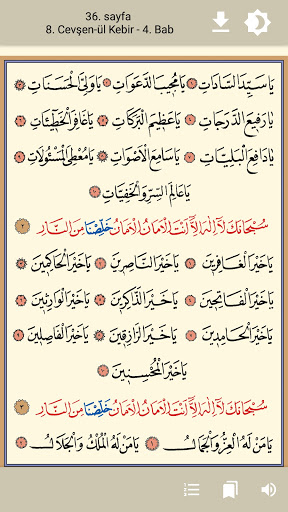 36. sayfa
8. Cevşen-ül Kebir - 4. Bab
يَا سَيِّدَ السَّادَاتِ يَا مُجِيبَ الدَّعَوَاتِ يَا وَلِيَّ الْحَسَنَاتِ
يَا رَفِيعَ الدَّرَجَاتِ يَا عَظِيمَ الْبَرَكَاتِ يَا غَافِرَ الْخَطِيئَاتِ
يَا دَافِعَ الْبَلِيَّاتِ يَا سَامِعَ الْأَصْوَاتِ يَا مُعْطِيَ الْمَسْئُولَاتِ
يَا عَالِمَ السِّرِّ وَالْخَفِيَّاتِ
سُبْحَانَكَ لَا إِلٰهَ إِلَّا أَنْتَ الْأَمَانُ الْأَمَانُ خَلِّصْنَا مِنَ النَّارِ
يَا خَيْرَ الْغَافِرِينَ يَا خَيْرَ النَّاصِرِينَ يَا خَيْرَ الْحَاكِمِينَ
يَا خَيْرَ الْفَاتِحِينَ يَا خَيْرَ الذَّاكِرِينَ يَا خَيْرَ الْوَارِثِينَ
يَا خَيْرَ الْحَامِدِينَ يَا خَيْرَ الرَّازِقِينَ يَا خَيْرَ الْفَاصِلِينَ
يَا خَيْرَ الْمُحْسِنِينَ
سُبْحَانَكَ لَا إِلٰهَ إِلَّا أَنْتَ الْأَمَانُ الْأَمَانُ خَلِّصْنَا مِنَ النَّارِ
يَا مَنْ لَهُ الْعِزُّ وَالْجَمَالُ يَا مَنْ لَهُ الْمُلْكُ وَالْجَلَالُ